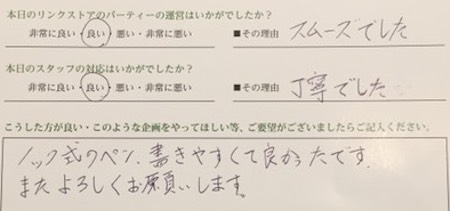 本日のリンクストアのパーティーの運営はいかがでしたか？
非常に良い・良い・悪い・非常に悪い ■その理由 スムーズでした
本日のスタッフの対応はいかがでしたか？
非常に良い・良い・悪い・非常に悪い ■その理由 丁寧でした
こうした方が良い・このような企画をやってほしい等、ご要望がございましたらご記入ください。
ノック式のペン、書きやすくて良かったです。
またよろしくお願いします。